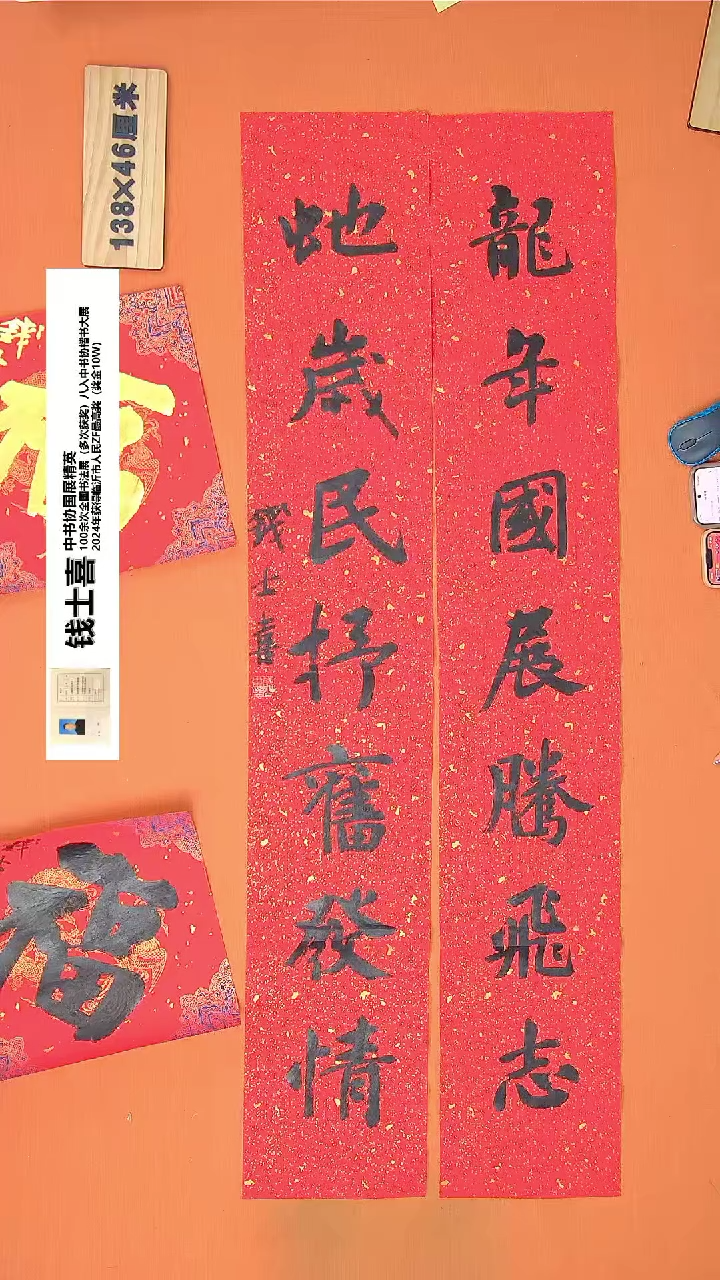 龍年國展騰飛志
虵歲民抒奮發情
錢士喜
138×46厘米
钱士喜
中书协国展精英
100余次全国书法展（多次获奖）八入中书协楷书大展
2024年获得临沂市人民ZF最高奖（奖金10W）
福
福